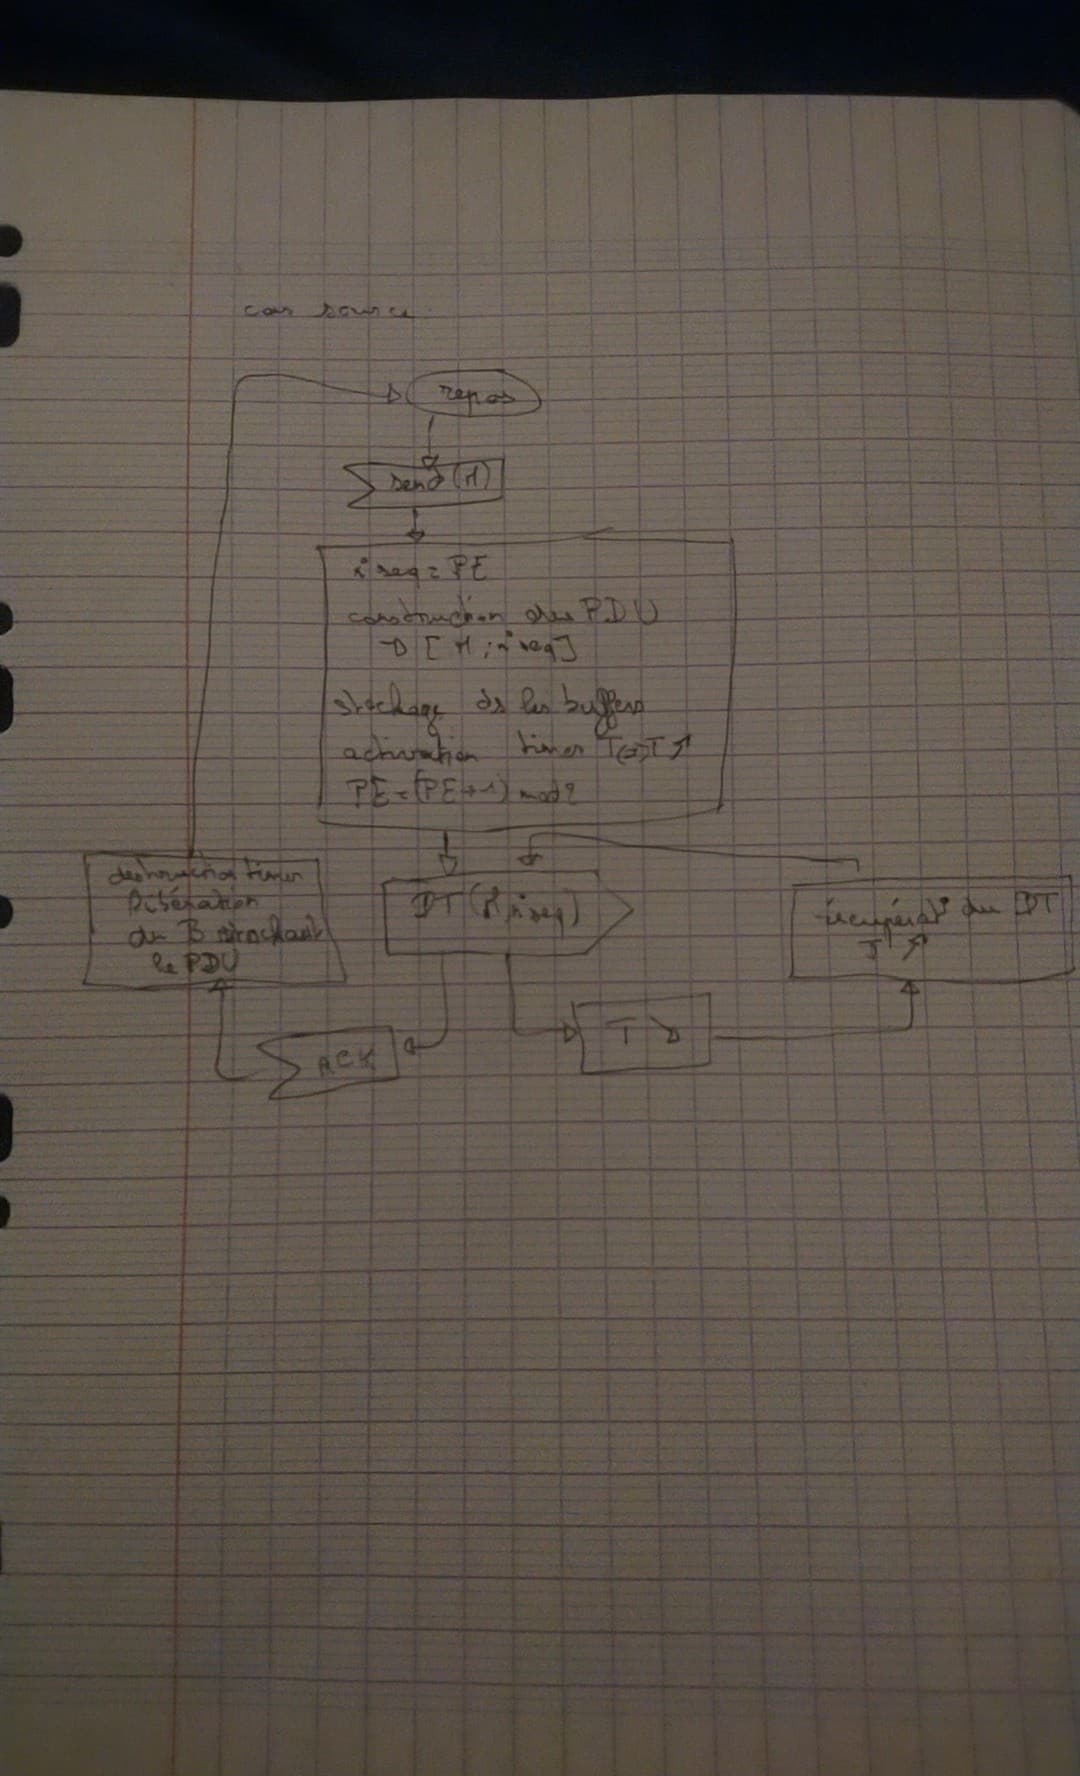 cas source
repos
send (M)
n°seq = PE
construction du PDU
→ [M ; n°seq]
stockage ds les buffers
activation timer T ↗
PE = (PE+1) mod 2
destruction timer
libération
du B stockant
le PDU
DT (M, n°seq)
récupérat° du DT
T ↗
ACK
T ↘